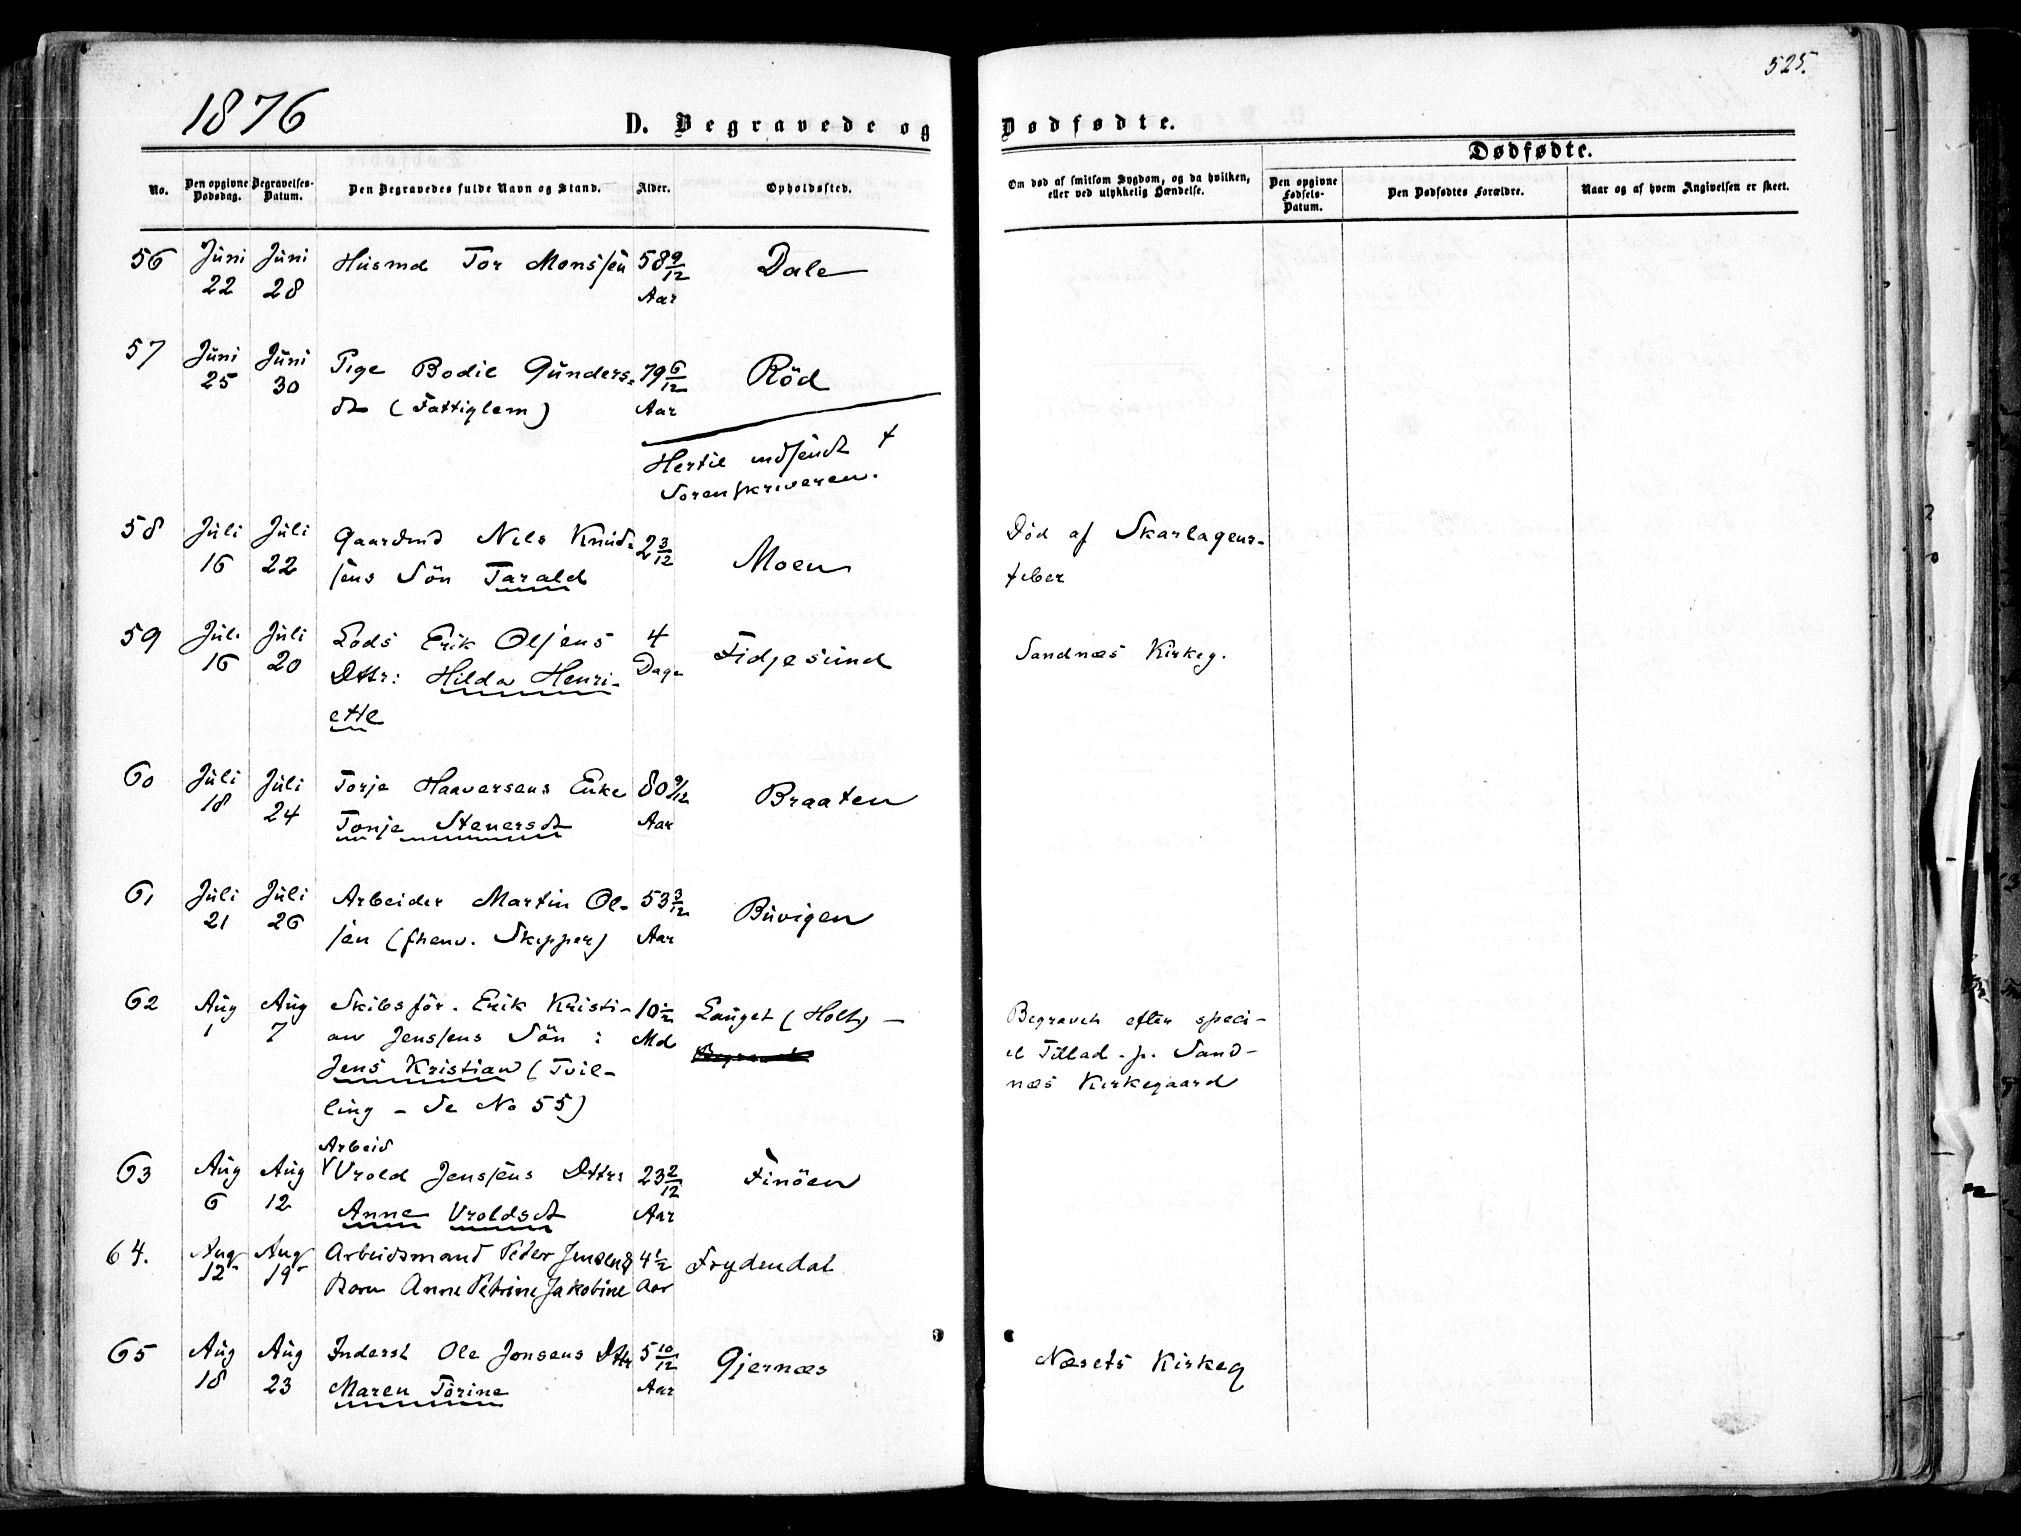 525.
1876
D. Begravede og Dødfødte.
Dødfødte.
No.
Den opgivne Dødsdag.
Begravelses-Datum.
Den Begravedes fulde Navn og Stand.
Alder.
Opholdssted.
Om død af smitsom Sygdom, og da hvilken, eller ved ulykkelig Hændelse.
Den opgivne Fødsels-Datum.
Den Dødfødtes Forældre.
Naar og af hvem Angivelsen er skeet.
56 Juni Juni Husmd Tor Monssen 58 9/12 Dale
22 28 Aar
57 Juni Juni Pige Bodil Gunders- 79 6/12 Röd
25 30 dt (Fattiglem) Aar
Hertil indsendt t
Sorenskriveren.
58 Juli Juli Gaardmd Nils Knud- 2 3/12 Moen Död af Skarlagens-
16 22 sens Sön Tarald feber
59 Juli Juli Lods Erik Olsens 4 Fidjesund Sandnæs Kirkeg.
16 20 Dttr: Hilda Henri- Dage
ette
60 Juli Juli Torje Haaversens Enke 80 9/12 Braaten
18 24 Tonje Steversdt Aar
61 Juli Juli Arbeider Martin Ol- 53 3/12 Buvigen
21 26 sen (fhenv. Skipper) Aar
62 Aug Aug Skibsför. Erik Kristi- 10 1/2 Lauget (Holt) — Begravet efter speci-
1 7 an Jenssens Sön : Md el Tillad. p. Sand-
Jens Kristian (Tvil- næs Kirkegaard
ling - Se No 55)
Arbeid
63 Aug Aug Vrold Jenssens Dttr: 23 2/12 Finöen
6 12 Anne Vroldsdt Aar
64. Aug Aug Arbeidsmand Peder Jensens 4 1/2 Frydendal
12 19 Barn Anne Petrine Jakobine Aar
65 Aug Aug Inderst Ole Jonsens Dttr 5 10/12 Gjernæs Næsets Kirkeg
18 23 Maren Torine Aar